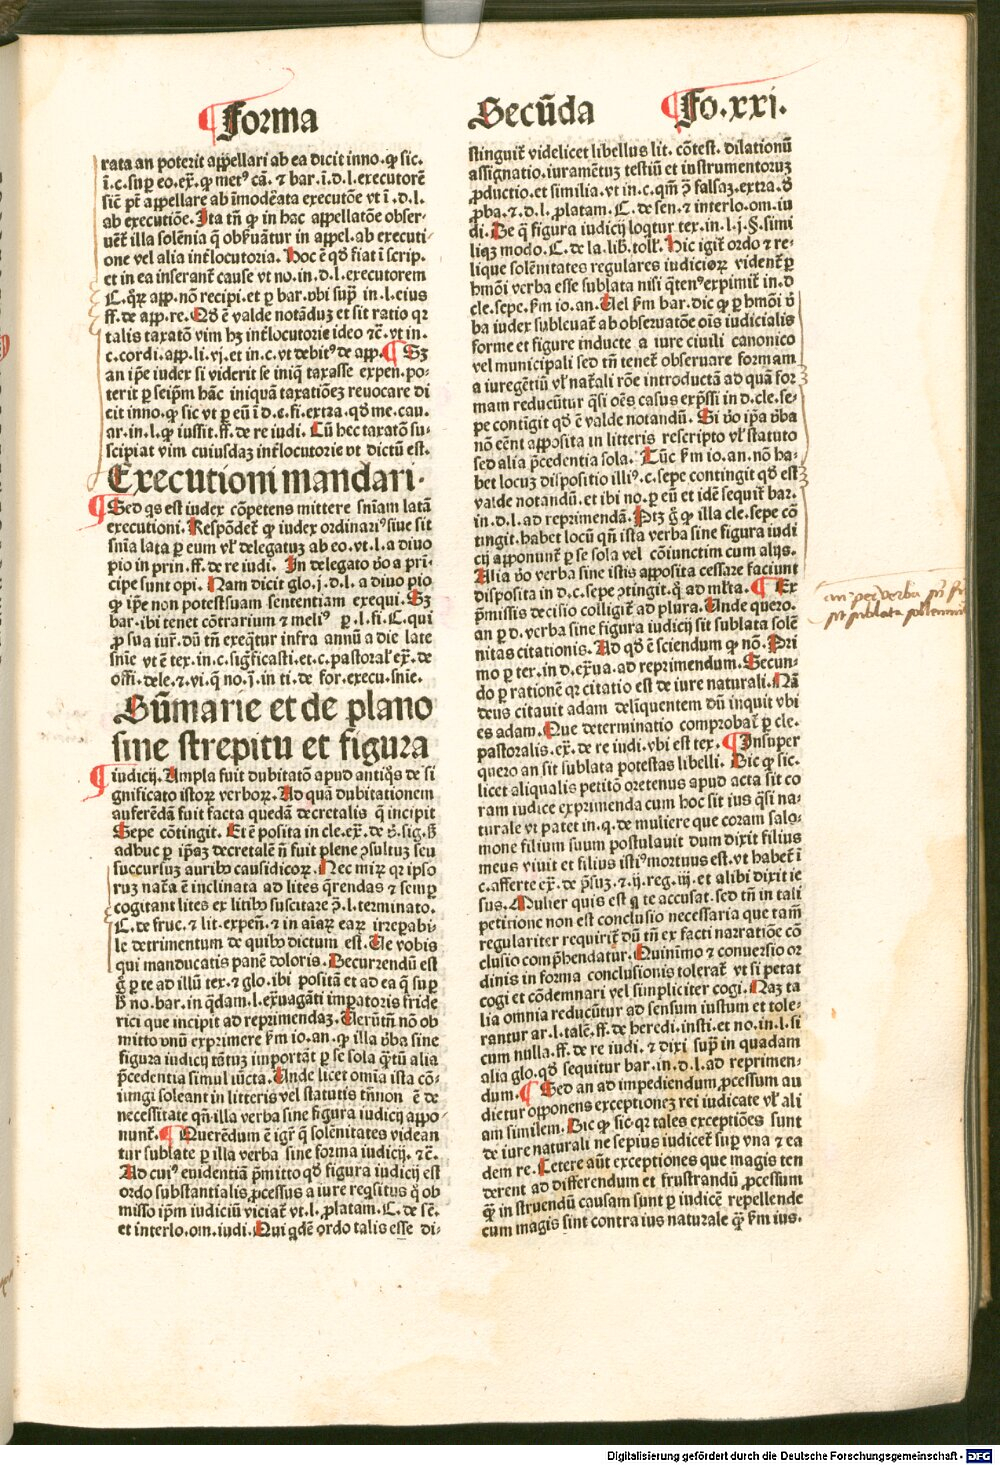 ¶ Forma
Secūda ¶ Fo.xxj.
rata an poterit appellari ab ea dicit inno. ꝙ sic.
ī.c.sup eo.ex̄. ꝙ metꝰ cā. ⁊ bar.ī.d.l.executorē
siē pt̄ appellare ab īmodēata executōe vt ī.d.l.
ab executiōe. Ita tn̄ ꝙ in hac appellatōe obser-
uēt᷑ illa solēnia q̄ obẜuātur in appel.ab executi-
one vel alia int̄locutoria. Hoc ē qđ fiat ī scrip.
et in ea inserant᷑ cause vt no.in.d.l.executorem
C.q̄ꝝ app.nō recipi.et ꝑ bar.vbi sup̄ in.l.eius
ff.de app.re. Qđ ē valde notāduꝫ et sit ratio qꝛ
talis taxatō vim hꝫ int̄locutorie ideo ⁊c̄.vt in.
c.cordi.app.li.vj.et in.c.vt debitꝰ de app. ¶ Sꝫ
an ip̄e iudex si viderit se iniq̄ taxasse expen.po-
terit ꝑ seip̄m hāc iniquā taxatiōeꝫ reuocare di
cit inno. ꝙ sic vt ꝑ eū ī d.c.fi.extra.qđ me.cau.
ar.in.l.ꝙ iussit.ff.de re iudi. Cū hec taxatō su-
scipiat vim cuiusdaꝫ int̄locutorie vt dictū est.
Executioni mandari.
¶ Sed qs est iudex cōpetens mittere sn̄iam latā
executioni. Respōdet᷑ ꝙ iudex ordinariꝰ siue sit
sn̄ia lata ꝑ eum vl̓ delegatuꝫ ab eo.vt.l.a diuo
pio in prin.ff.de re iudi. In delegato v̄o a pri-
cipe sunt opi. Nam dicit glo.j.d.l.a diuo pio
ꝙ ip̄e non potest suam sententiam exequi. Sꝫ
bar.ibi tenet cōtrarium ⁊ meliꝰ ꝑ.l.fi.C.qui
ꝓ sua iur̄.dū tn̄ exeq̄tur infra annū a die late
sn̄ie vt ē tex.in.c.sig̓ficasti.et.c.pastoral̓ ex̄.de
offi.dele.⁊.vi.q̄ no.ī.in ti.de for.execu.snīe.
Sūmarie et de plano
sine strepitu et figura
¶ iudicij. Ampla fuit dubitatō apud antiq̄s de si
gnificato istoꝝ verboꝝ. Ad quā dubitationem
auferēdā fuit facta quedā decretalis q̄ incipit
Sepe cōtingit. Et ē posita in cle.ex̄.de v̄.sig.sꝫ
adhuc ꝑ ip̄aꝫ decretalē n̄ fuit plene ꝯsultuꝫ seu
succursuꝫ auribꝰ causidicoꝝ. Nec miꝝ qꝛ ipso
ruꝫ nat̄a ē inclinata ad lites q̄rendas ⁊ semꝑ
cogitant lites ex litibꝰ suscitare ꝓ.l.terminato.
C.de fruc.⁊ lit.expen̄.⁊ in aīaꝝ eaꝝ irrepabi-
le detrimentum de quibꝰ dictum est. Ue vobis
qui manducatis panē doloris. Recurrendū est
g̊ ꝑ te ad illū tex.⁊ glo.ibi positā et ad ea q̄ suꝑ
h̄ no.bar.in q̄dam.l.ex̄uagāti impatoris fride
rici que incipit ad reprimendaꝫ. Uerūtn̄ nō ob
mitto vnū exprimere ẜm io.an. ꝙ illa v̄ba sine
figura iudicij tātuꝫ importāt ꝑ se sola q̄ʒtū alia
p̄cedentia simul iūcta. Unde licet omīa ista cō-
iungi soleant in litteris vel statutis tn̄ non ē de
necessitate qn̄.illa verba sine figura iudicij appo-
nunt᷑. ¶ Querēdum ē igr̄ q̄ solēnitates videan
tur sublate ꝑ illa verba sine forma iudicij.⁊c̄.
Ad cuiꝰ euidentiā p̄mitto qđ figura iudicij est
ordo substantialis ꝓcessus a iure reqsitus q̄ ob
misso ip̄m iudiciū viciat᷑ vt.l.ꝓlatam.C.de sē.
et interlo.om.iudi. Qui qdē ordo talis esse di-
stinguit᷑ videlicet libellus lit.cōtest.dilationū
assignatio.iuramētuꝫ testiū et instrumentoruꝫ
ꝓductio.et similia.vt in.c.qm̄ ꝯ falsaꝫ.extra.đ
ꝓba.⁊.d.l.ꝓlatam.C.de sen.⁊ interlo.om.iu
di. De q̄ figura iudicij loqtur tex.in.l.j.§.simi
liqꝫ modo.C.de la.lib̄.toll̓. Hic igit᷑ ordo ⁊ re-
lique solēnitates regulares iudicioꝝ vident᷑ ꝑ
hmōi verba esse sublata nisi q̄tenꝰ expimit᷑ in.d
cle.sepe.ẜm io.an. Uel ẜm bar.dic ꝙ ꝑ hmōi v̄
ba iudex subleuat᷑ ab obseruatōe oīs iudicialis
forme et figure inducte a iure ciuili canonico
vel municipali sed tn̄ tenet᷑ obseruare formam
a iuregētiū vl̓ nat̓ali rōe introductā ad quā for
mam reducūtur q̄si oēs casus exp̄ssi in d.cle.se-
pe contigit qđ ē valde notandū. Si v̄o ip̄a v̄ba
nō eēnt apposita in litteris rescripto vl̓ statuto
sed alia p̄cedentia sola. Tūc ẜm io.an.nō ha-
bet locuꝫ dispositio illiꝰ.c.sepe contingit qđ est
valde notandū.et ibi no.ꝑ eū et idē sequit᷑ bar.
in.d.l.ad reprimendā. Ptꝫ g̊ ꝙ illa cle.sepe cō
tingit.habet locū qn̄ ista verba sine figura iudi
cij apponunt᷑ ꝑ se sola vel cōiunctim cum alijs.
Alia v̄o verba sine istis apposita cessare faciunt
disposita in.d.c.sepe ꝯtingit.q̄ ad ml̓ta. ¶ Ex
p̄missis decisio colligit᷑ ad plura. Unde quero.
an ꝑ d.verba sine figura iudicij sit sublata solē
nitas citationis. Ad qđ ē sciendum ꝙ nō. Pri
mo ꝑ ter.in d.ex̄ua.ad reprimendum. Secun-
do ꝑ rationē qꝛ citatio est de iure naturali. Nā
deus citauit adam deliquentem dū inquit vbi
es adam. Que determinatio comprobat᷑ ꝑ cle.
pastoralis.ex̄.de re iudi.vbi est tex. ¶ Insuper
quero an sit sublata potestas libelli. Dic ꝙ sic.
licet aliqualis petitō oretenus apud acta sit co
ram iudice exprimenda cum hoc sit ius q̄si na-
turale vt patet in.q.de muliere que coram salo-
mone filium suum postulauit dum dixit filius
meus viuit et filius istiꝰ mortuus est.vt habet᷑ ī
c.afferte ex̄.de p̄suꝫ.⁊.ij.reg.iij.et alibi dixit ie
sus. Mulier quis est q̄ te accusat.sed tn̄ in tali
petitione non est conclusio necessaria que tam̄
regulariter requirit᷑ dū tn̄ ex facti narratiōe cō
clusio comp̄hendatur. Quinimo ⁊ conuersio or
dinis in forma conclusionis tolerat᷑ vt si petat
cogi et cōdemnari vel simpliciter cogi. Naꝫ ta
lia omnia reducūtur ad sensum iustum et tole-
rantur ar.l.talē.ff.de heredi.insti.et no.in.l.si
cum nulla.ff.de re iudi.⁊ dixi sup̄ in quadam
alia glo.qđ sequitur bar.in.d.l.ad reprimen-
dum. ¶ Sed an ad impediendum ꝓcessum au
dietur opponens exceptioneꝫ rei iudicate vl̓ ali
am similem. Dic ꝙ sic qꝛ tales exceptiōes sunt
de iure naturali ne sepius iudicet᷑ suꝑ vna ⁊ ea
dem re. Cetere aūt exceptiones que magis ten
derent ad differendum et frustrandū ꝓcessum
q̄ʒ in struendū causam sunt ꝑ iudicē repellende
cum magis sint contra ius naturale q̄ʒ ẜm ius.
Digitalisierung gefördert durch die Deutsche Forschungsgemeinschaft - DFG